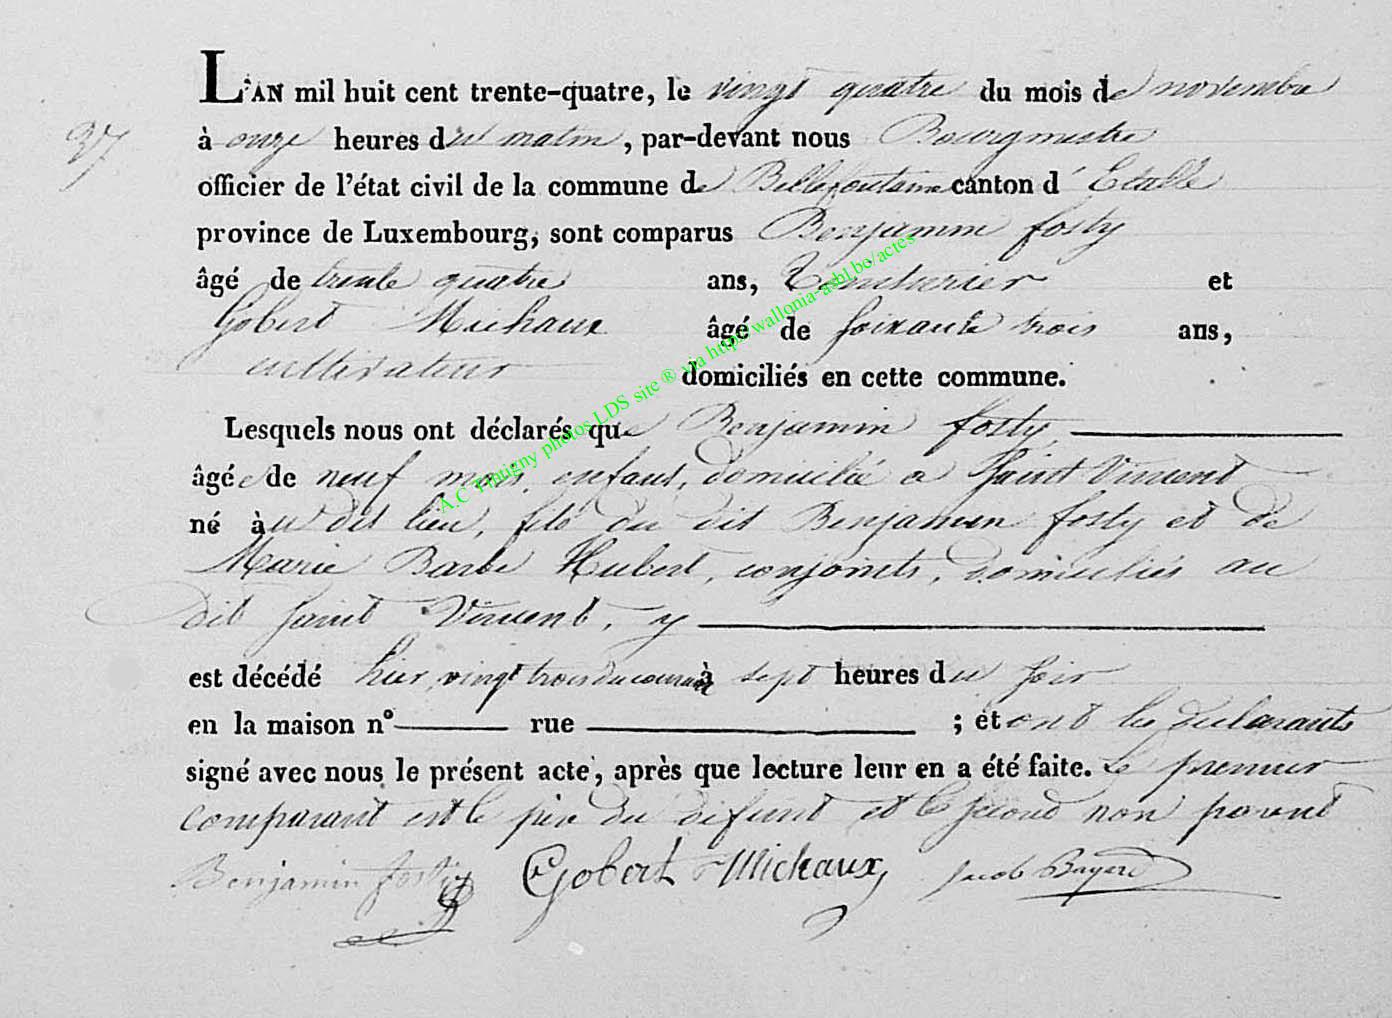 L'AN mil huit cent trente-quatre, le vingt quatre du mois de novembre
37
à onze heures du matin, par-devant nous Bourgmestre
officier de l'état civil de la commune de Bellefontaine canton d'Etalle
province de Luxembourg, sont comparus Benjamin fosty
âgé de trente quatre ans, Teinturier et
Gobert Michaux âgé de soixante trois ans,
cultivateur domiciliés en cette commune.
Lesquels nous ont déclarés que Benjamin fosty,
âgé de neuf mois, enfant, domicilié a Saint Vincent
né au dit lieu, fils du dit Benjamin fosty et de
Marie Barbe Hubert, conjoints, domiciliés au
dit Saint Vincent, y
est décédé hier, vingt trois du courant à sept heures du soir
en la maison n° rue ; et ont les declarants
signé avec nous le présent acte, après que lecture leur en a été faite. Le premier
comparant est le père du défunt et le second non parent
Benjamin fosty Gobert Michaux Jacob
A.C Tintigny photos LDS site ® via http://wallonia-asbl.be/actes